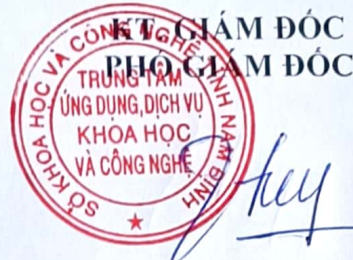 KT. GIÁM ĐỐC
PHÓ GIÁM ĐỐC
SỞ KHOA HỌC VÀ CÔNG NGHỆ TỈNH NAM ĐỊNH
TRUNG TÂM
ỨNG DỤNG, DỊCH VỤ
KHOA HỌC
VÀ CÔNG NGHỆ